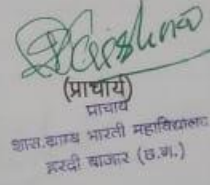 (प्राचार्य)
प्राचार्य
शास. ग्राम्य भारती महाविद्यालय
हरदी बाजार (छ.ग.)